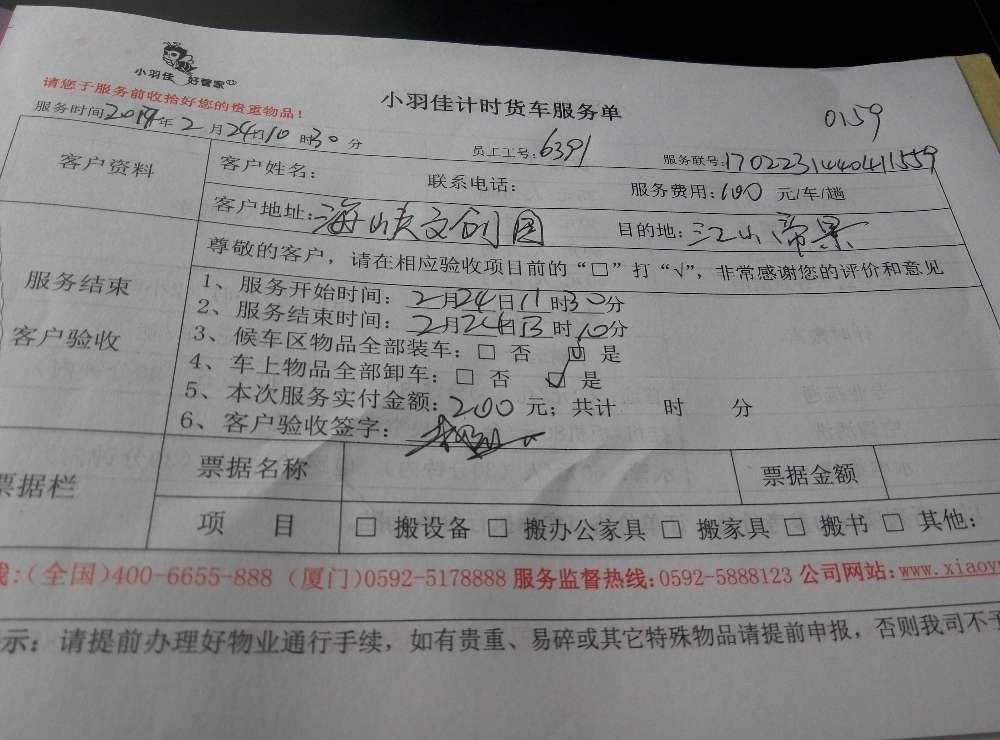 小羽佳 好管家
请您于服务前收拾好您的贵重物品！
小羽佳计时货车服务单
0159
服务时间2017年2月24日10时30分
员工工号：6391
服务联号：1702231440411559
客户资料
客户姓名： 联系电话： 服务费用：600 元/车/趟
客户地址：海峡文创园 目的地：江山帝景
服务结束
客户验收
尊敬的客户，请在相应验收项目前的“□”打“√”，非常感谢您的评价和意见
1、服务开始时间：2月24日11时30分
2、服务结束时间：2月24日13时10分
3、候车区物品全部装车：□ 否 ☑ 是
4、车上物品全部卸车：□ 否 ☑ 是
5、本次服务实付金额：200元；共计 时 分
6、客户验收签字：
票据栏
票据名称 票据金额
项 目 □ 搬设备 □ 搬办公家具 □ 搬家具 □ 搬书 □ 其他：
线：（全国）400-6655-888（厦门）0592-5178888 服务监督热线：0592-5888123 公司网站：www.xiaoy
示：请提前办理好物业通行手续，如有贵重、易碎或其它特殊物品请提前申报，否则我司不予